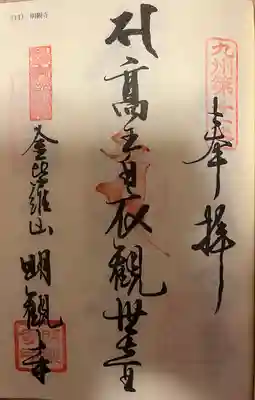 (11) 明観寺
九州第十一
奉拝
高王白衣觀世音
金毘羅山 明觀寺